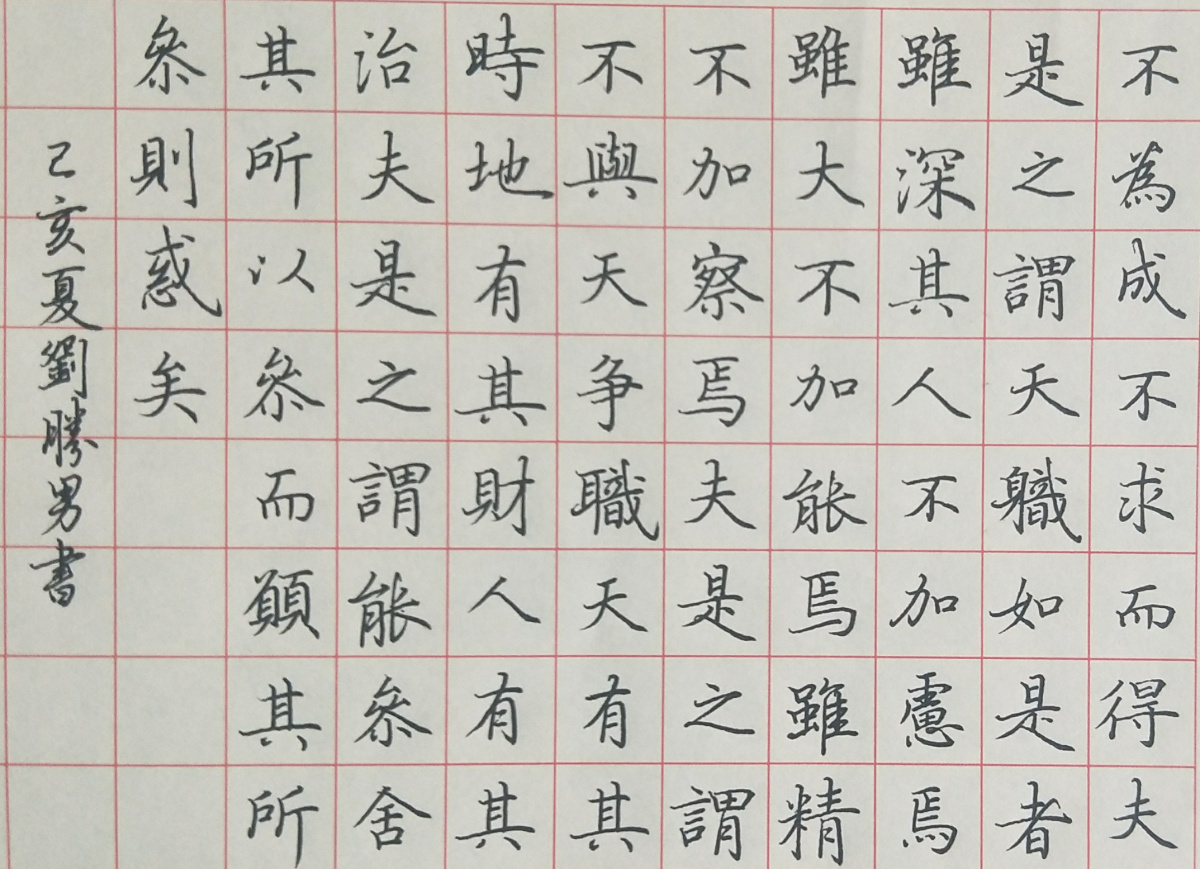 不為成不求而得夫
是之謂天職如是者
雖深其人不加慮焉
雖大不加能焉雖精
不加察焉夫是之謂
不與天争職天有其
時地有其財人有其
治夫是之謂能參舍
其所以參而願其所
參則惑矣
己亥夏劉勝男書